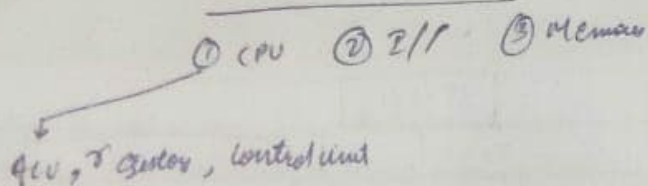 ① CPU ② I/P ③ Memory
ALU, register, control unit